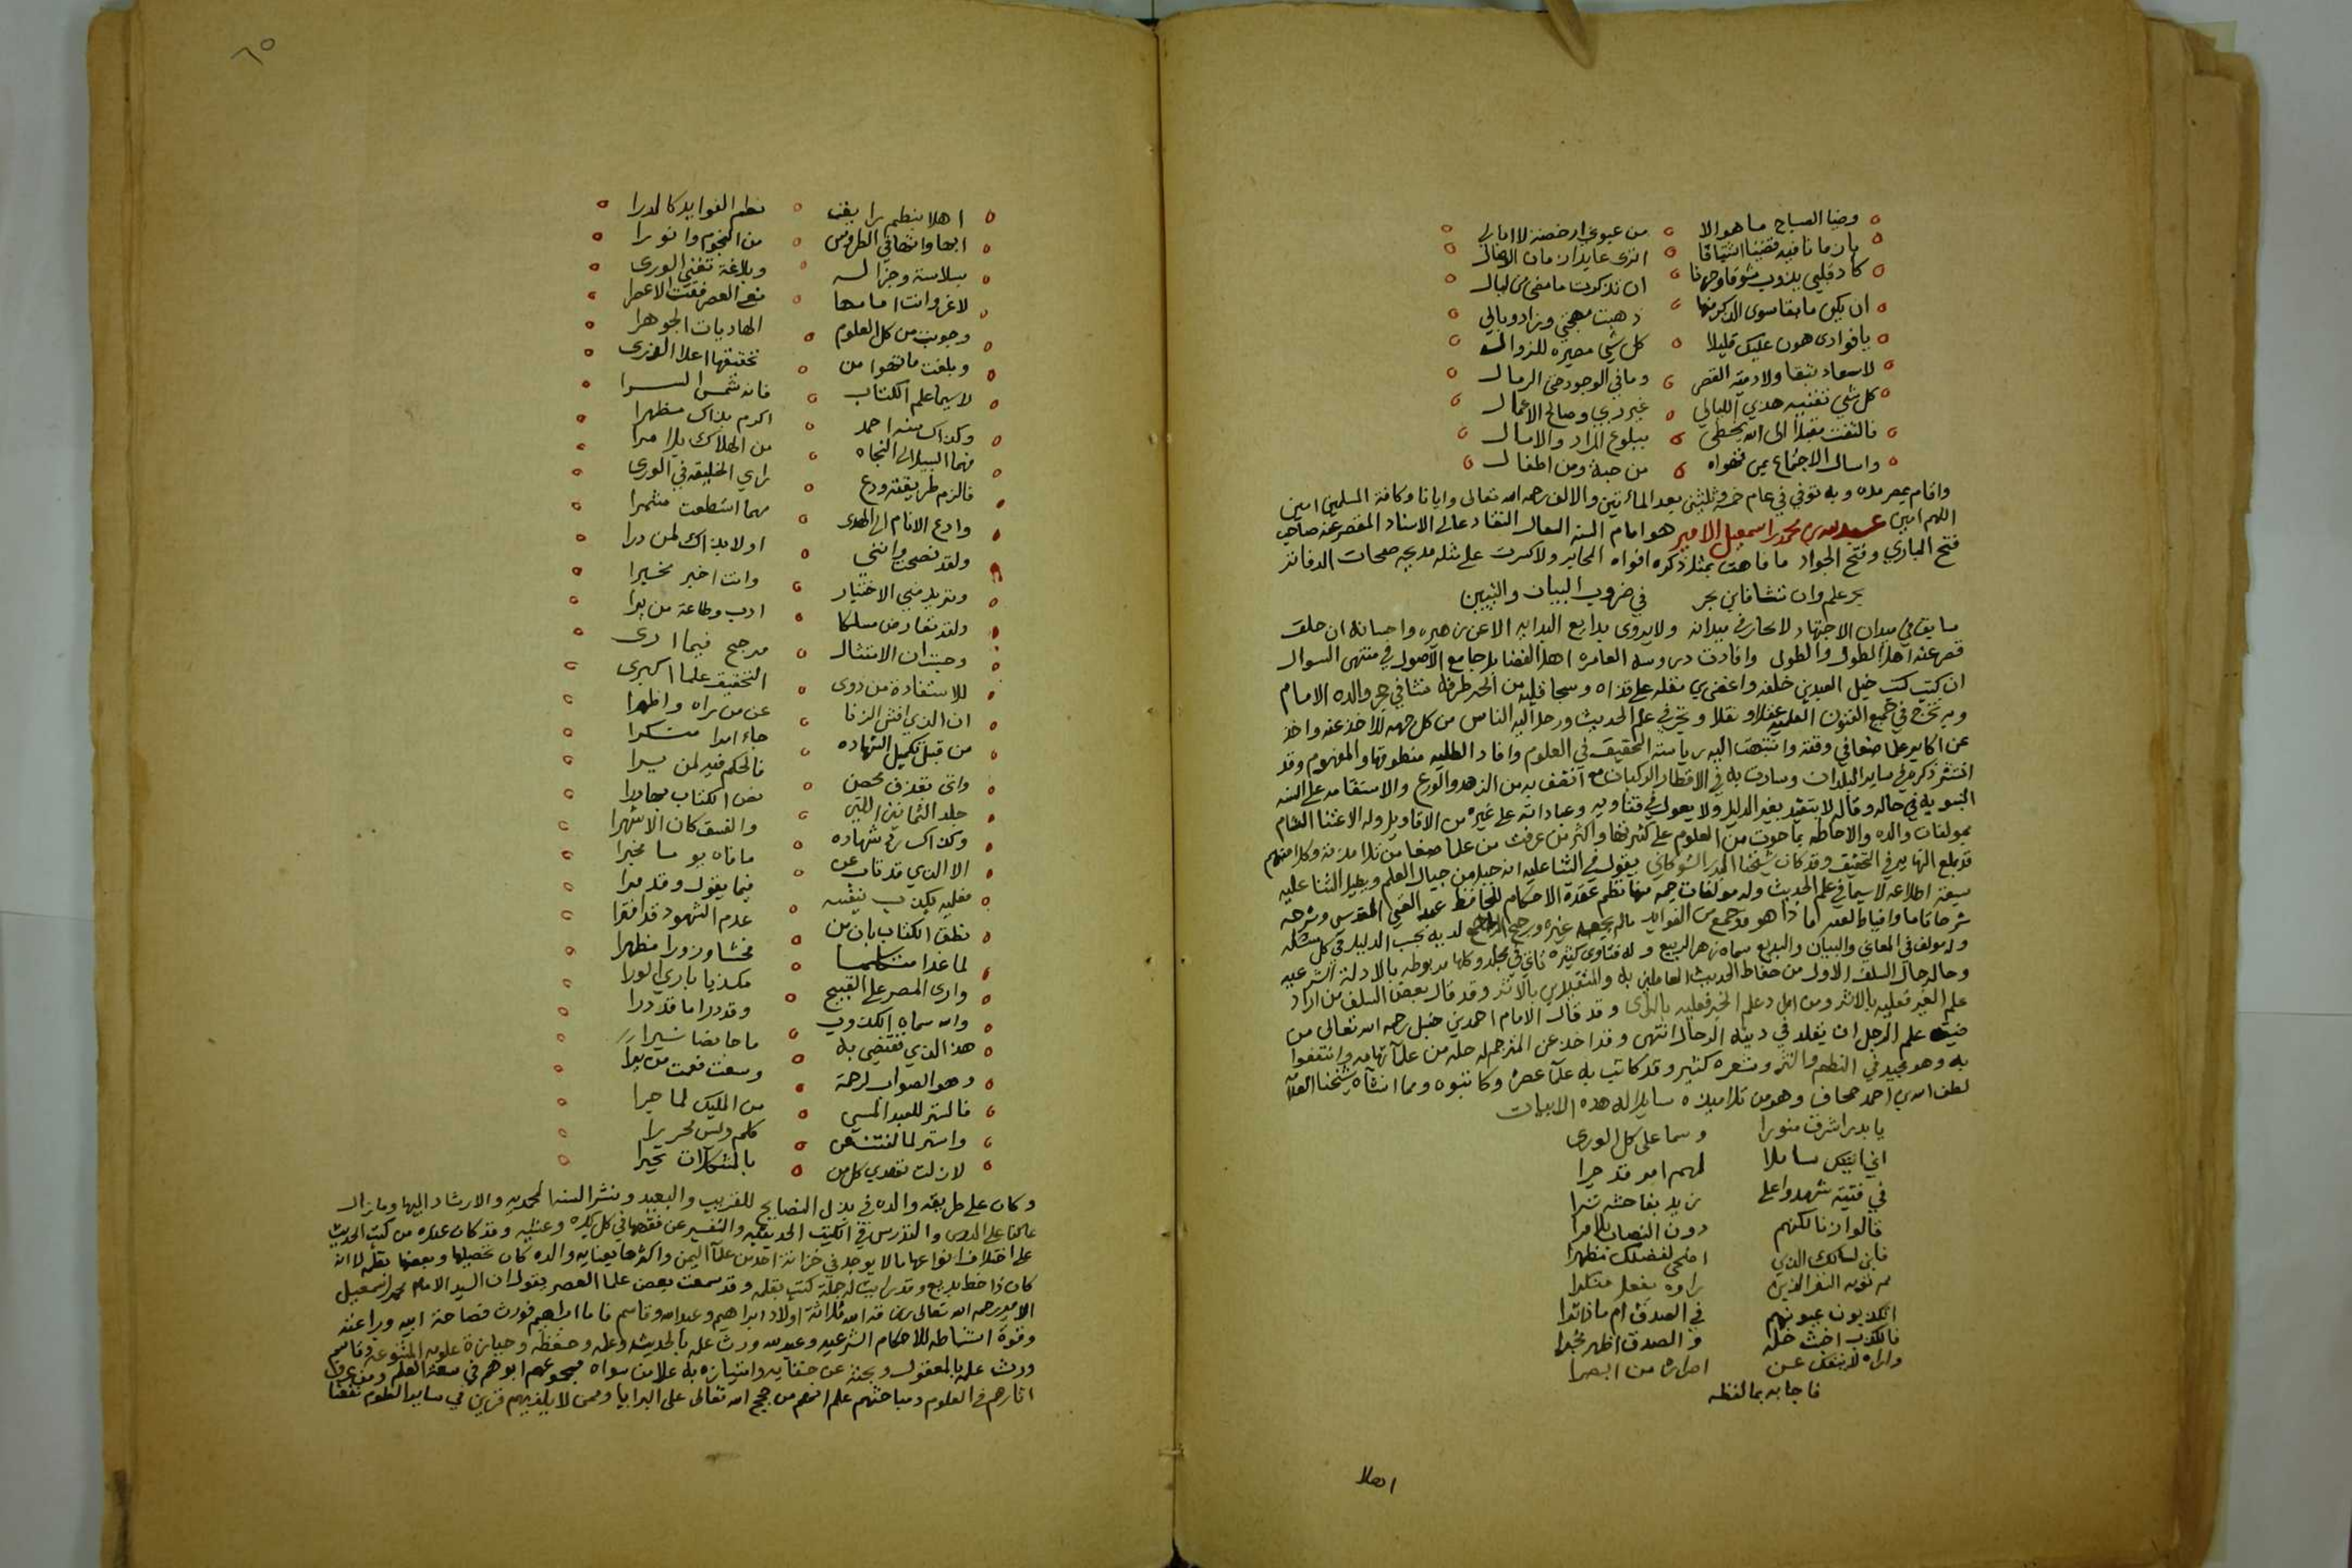 وضيا الصباح ما هو الا من عيوني ارخصته لا ابالي
بان ما نا فيه فقضنا اشتياقا اترى عايدا زمان الوصال
كاد قلبي يذوب شوقا وجهنا ان تذكرت ما مضى من ليال
ان يكن ما بقا سوى الذكر منها ذهبت مهجتي وزاد وبالي
يا فوادي هون عليك قليلا كل شي مصيره للزوال
لا سعاد تبقا ولا دمية القصر وما في الوجود حتى الرمال
كل شي تفنيه هذي الليالي غير ربي وصالح الاعمال
فالتفت مقبلا الى الله تحظى ببلوغ المراد والامال
واسال الاجتماع بمن تهواه من حبة ومن اطفال
واقام بمصر مده وبه توفي في عام خمسة وثلثين بعد المائتين والالف رحمه الله تعالى وايانا وكافة المسلمين امين
اللهم امين عبد الله بن محمد بن اسمعيل الامير هو امام السنه النقاد عالي الاسناد المقصر عنه صاحب
فتح الباري وفتح الجواد ما فاهت بمثل ذكره افواه المحابر ولا كسرت على مثله مدبجه صفحات الدفاتر
بحر علم وان تشا فابن بحر في ضروب البيان والتبيين
سابق في ميدان الاجتهاد لا يجارى في ميدانه ولا يروى بدايع البدايه الا عن زهيره واحسانه ان حلق
قصر عنه اهل الطول والطول وافادت دروسه العامره اهل الفضايل جامع الاصول في منتهى السوال
ان كتب كتب خيل العبدين خلفه من الجد طرفه نشا في حجر والده الامام
وبه تخرج في جميع الفنون العلميه عقلا ونقلا وتحر في علم الحديث ورحل اليه الناس من كل جهه للاخذ عنه واخذ
عن اكابر علما صنعا في وقته وانتهت اليه رياسة التحقيق في العلوم وافاد الطلبه منطوقها والمفهوم وقد
انتشر ذكره في ساير البلدان وسارت به في الاقطار الركبان مع اتصف به من الزهد والورع والاستقامه على السنه
النبويه في حاله وقاله لا يتقيد بغير الدليل ولا يعول في فتاويه وعباداته على غيره من الاقاويل وله الاعتنا التام
بمولفات والده والاحاطه بما حوت من العلوم على كثرتها واكثر من عرفت من علما صنعا من تلامذته وكلا منهم
قد بلغ النهايه في التحقيق وقد كان شيخنا البدر الشوكاني يقول في الثنا عليه انه جبل من جبال العلم ويطيل الثنا عليه
بسعة اطلاعه لا سيما في علم الحديث وله مولفات جمه منها نظم عمدة الاحكام للحافظ عبد الغني المقدسي وشرحه
شرحا تاما قد جمع من الفوايد مالم يجمعه غيره ورجح الراجح لديه بحب الدليل في كل مسئله
وله مولف في المعاني والبيان والبديع سماه زهر الربيع وله فتاوى كثيره تاتي في مجلد وكلها مربوطه بالادلة الشرعيه
وحاله حال السلف الاول من حفاظ الحديث العاملين به والمتقيدين بالاثر وقد قال بعض السلف من اراد
علم القبر فعليه بالاثر ومن اراد علم الخبز فعليه بالراي وقد قال الامام احمد بن حنبل رحمه الله تعالى من
ضيق علم الرجل ان يقلد في دينه الرجال انتهى وقد اخذ عن المترجم له جله من علما تهامه وانتفعوا
به وهو مجيد في النظم والنثر وشعره كثير وقد كاتب به علما عصره وكاتبوه ومما انشاه شيخنا العلا
لطف الله بن احمد جحاف وهو من تلاميذه سايلا له هذه الابيات
يا بدر اشرق منورا وسما على كل الورى
اني اتيتك سايلا لمهم امر قد جرا
في فتية شهدوا على زيد بفاحشه ترا
قالوا زنا لكنهم دون النصاب بلا مرا
فابن لسالك الذي اضحى لفضلك مظهرا
فالكذب اخبث خلة والصدق اظهر مخبرا
فاجابه بما لفظه
اهلا
٦٥
اهلا بنظم رايق نظم الفوايد كالدرا
ابها وانها في الطروس من النجوم وانورا
بسلاسة وجزالة وبلاغة تفني الورى
لا غرو انت امامها
وحويت من كل العلوم الهاديات الجوهرا
وبلغت ما تهوا من تحقيقها اعلا الذرى
لا سيما علم الكتاب فانه شمس السرا
وكذاك سنة احمد اكرم بذاك مظهرا
فهما السبيل الى النجاه من الهلاك بلا مرا
فالزم طريقته ودع راي الخليقه في الورى
وادع الانام الى الهدى مهما استطعت مشمرا
ولقد نصحت وانني اولا بذاك لمن درا
وتريد مني الاختيار وانت اخبر مخبرا
ولقد تعارض مسلكا ادب وطاعة من يرا
وحيث ان الامتثال مرجح فيما ارى
للاستفادة من ذوى التحقيق علما اكبرى
ان الذي افشى الزنا عن من راه واظهرا
من قبل تكميل الشهاده جاء امرا منكرا
واتى بقذف محصن فالحكم فيه لمن يرا
جلد الثمانين التي نص الكتاب بها درا
وكذاك رد شهاده والفسق كان الاشهرا
الا الذي قد تاب عن ما فاه بو ما مخبرا
فعليه يكذب نفسه فيما يقول وقد فرا
نطق الكتاب بان من عدم الشهود قد افترا
لما غدا متكلما فحشا وزورا مظهرا
وارى المصر على القبيح مكذبا باري الورا
والله سماه الكذوب وقد درا ما قد درا
هذا الذي تقضي به
وهو الصواب لرحمة وسعت فعمت من برا
فالستر للعبد المسي من المليك لما جرا
واستر لما لفقته كلم وليس محررا
لا زلت تهدي كل من بالمشكلات تحيرا
وكان على طريقة والده في بذل النصايح للقريب والبعيد ونشر السنه المحمديه والارشاد اليها وما زال
عاكفا على الدرس والتدريس في الكتب الحديثيه والتفسير عن فقهها في كل بكره وعشيه وقد كان عنده من كتب الحديث
على اختلاف انواعها ما لا يوجد في خزانة احد من علما اليمن واكثرها بعنايه والده كان تحصيلها وبعضها بقلمه لانه
كان ذا خط بديع وقد رايت له جملة كتب بقلمه وقد سمعت بعض علما العصر يقول ان السيد الامام محمد بن اسمعيل
الامير رحمه الله تعالى رزقه الله ثلاثة اولاد ابراهيم وعبد الله وقاسم فاما ابراهيم فورث فصاحة ابيه وبراعته
وقوة استنباطه للاحكام الشرعيه وعبد الله ورث علمه بالحديث وعمله وحفظه وحيازة علومه المتنوعه وقاسم
ورث علمه بالمعقول وبحثه عن حقايقه وامتيازه به على من سواه فمجموعهم ابوهم في سعة العلم ومن عرف
اثارهم في العلوم ومباحثهم علم انهم من حجج الله تعالى على البرايا وممن لا يلز بهم قرين في ساير العلوم نفعنا